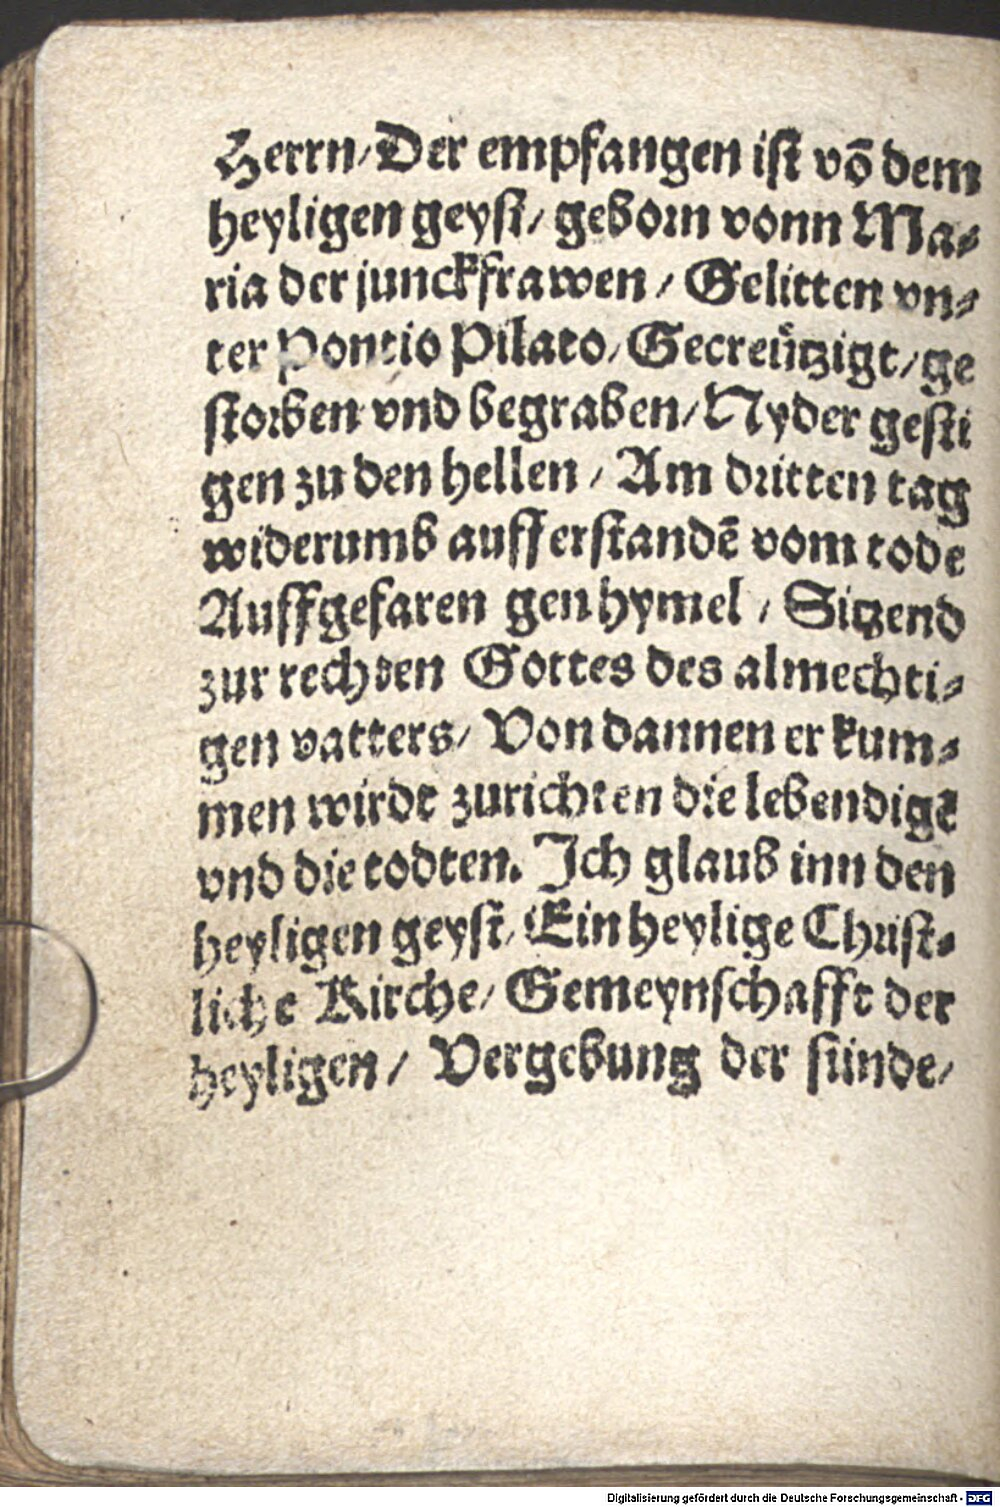 Herrn/ Der empfangen ist võ dem
heyligen geyst/ geborn vonn Ma⸗
ria der junckfrawen/ Gelitten vn⸗
ter Pontio Pilato/ Gecreützigt/ ge
storben vnd begraben/ Nyder gesti
gen zu den hellen/ Am dritten tag
widerumb aufferstandẽ vom tode
Auffgefaren gen hymel/ Sitzend
zur rechten Gottes des almechti⸗
gen vatters/ Von dannen er kum⸗
men wirdt zurichten die lebendigẽ
vnd die todten. Ich glaub inn den
heyligen geyst/ Ein heylige Christ⸗
liche Kirche/ Gemeynschafft der
heyligen/ Vergebung der sünde/
Digitalisierung gefördert durch die Deutsche Forschungsgemeinschaft - DFG